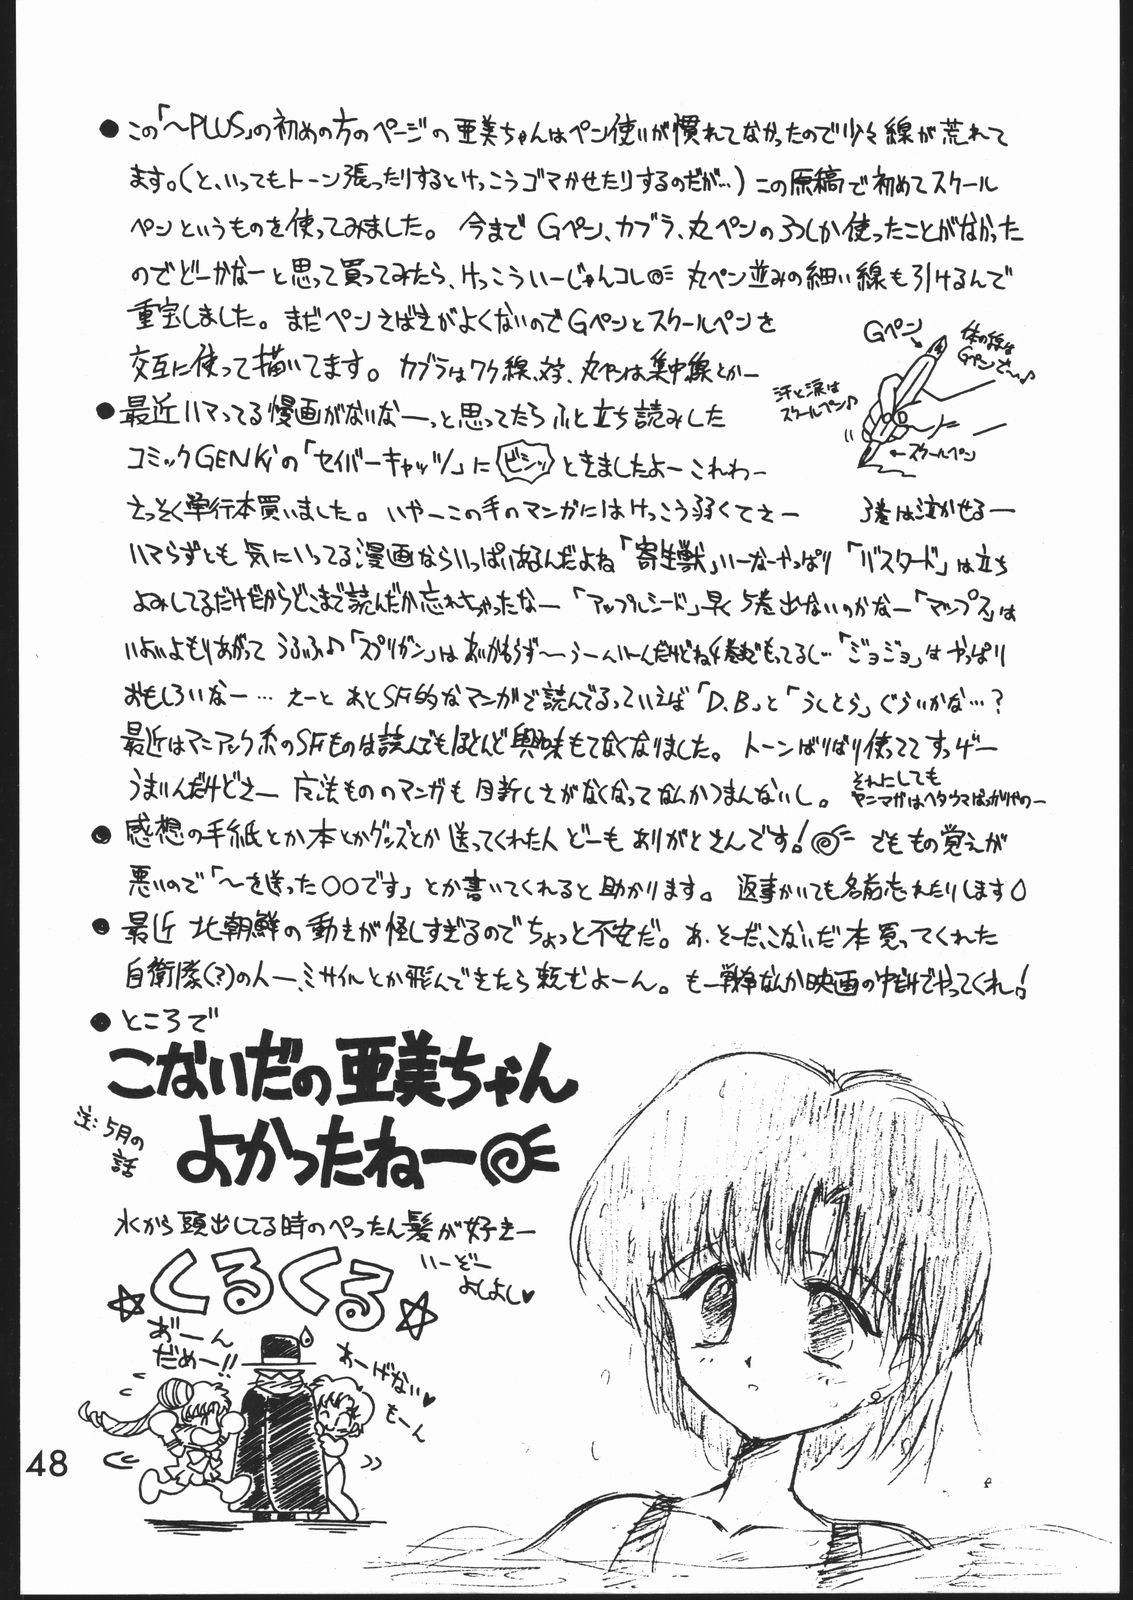 ●この「〜PLUS」の初めの方のページの亜美ちゃんはペン使いが慣れてなかったので少々線が荒れて
ます。(と、いってもトーン張ったりするとけっこうゴマかせたりするのだが…)この原稿で初めてスクール
ペンというものを使ってみました。今までGペン、カブラ、丸ペンの3つしか使ったことがなかった
のでどーかなーと思って買ってみたら、けっこういーじゃんコレ 丸ペン並みの細い線も引けるんで
重宝しました。まだペンさばきがよくないのでGペンとスクールペンを
交互に使って描いてます。カブラはワク線、文字、丸ペンは集中線とかー
Gペン
体の線はGペンでー♪
汗と涙はスクールペン♪
←スクールペン
●最近ハマってる漫画がないなーっと思ってたらふと立ち読みした
コミックGENKiの「セイバーキャッツ」にビシッときましたよーこれわー
さっそく単行本買いました。いやーこの手のマンガにはけっこう弱くてさー 3巻は泣かせるー
ハマらずとも気にいってる漫画ならいっぱいあるんだよね「寄生獣」いーなーやっぱり「バスタード」は立ち
よみしてるだけだからどこまで読んだか忘れちゃったなー「アップルシード」早く5巻出ないのかなー「マップス」は
いよいよもりあがってうふふ♪「スプリガン」はあいかわらず〜うーんいーんだけどね4巻までもってるし…「ジョジョ」はやっぱり
おもしろいなー…えーとあとSF的なマンガで読んでるっていえば「D.B」と「うしとら」ぐらいかな…?
最近はマニアック系のSFものは読んでもほとんど興味もてなくなりました。トーンばりばり使っててすっげー
うまいんだけどさー 魔法もののマンガも目新しさがなくなってなんかつまんないし。
それにしても
ヤンマガはヘタウマばっかりやのー
●感想の手紙とか本とかグッズとか送ってくれた人どーもありがとさんです! でももの覚えが
悪いので「〜を送った○○です」とか書いてくれると助かります。返事かいても名前忘れたりします
●最近北朝鮮の動きが怪しすぎるのでちょっと不安だ。あ、そーだ、こないだ本買ってくれた
自衛隊(?)の人ー、ミサイルとか飛んできたら頼むよーん。もー戦争なんか映画の中だけでやってくれ!
●ところで
こないだの亜美ちゃん
よかったねー
注:5月の
話
水から頭出してる時のぺったん髪が好きー
くるくる
いーどー
よしよし♥
あ゛ーん
だめー!!
あーげない♥
もーん
48